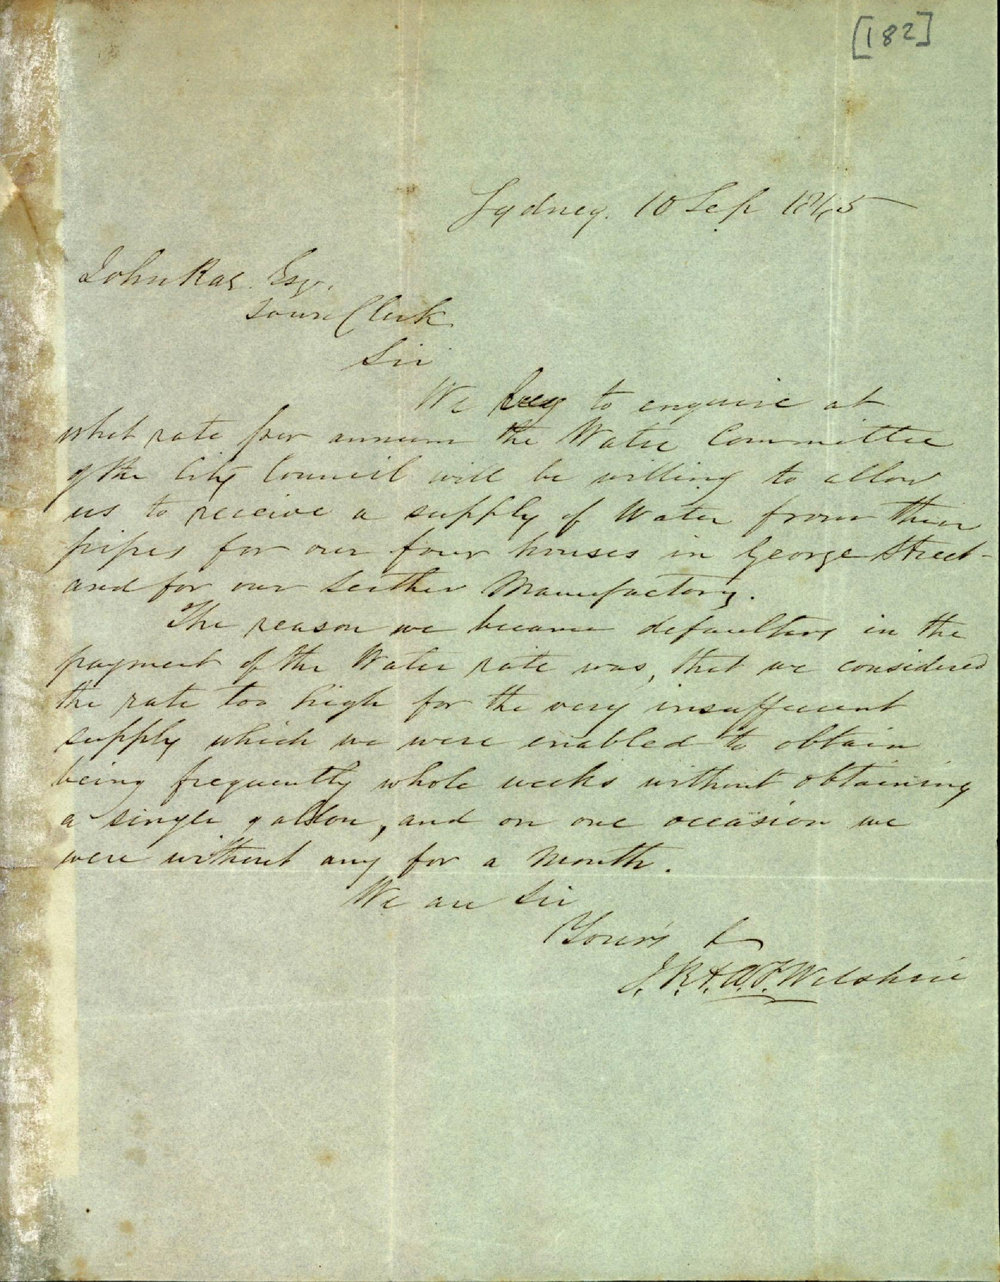 [182]
Sydney. 10 Sep 1845
John Rae Esq.
Town Clerk
Sir
We beg to enquire at
what rate per annum the Water Committee
of the City Council will be willing to allow
us to receive a supply of Water from their
pipes for our four houses in George Street
and for our Leather Manufactory.
The reason we became defaulters in the
payment of the Water rate was, that we considered
the rate too high for the very insufficient
supply which we were enabled to obtain
being frequently whole weeks without obtaining
a single gallon, and on one occasion we
were without any for a Month.
We are Sir
Your's &
J. R. & A. F. Wilshire